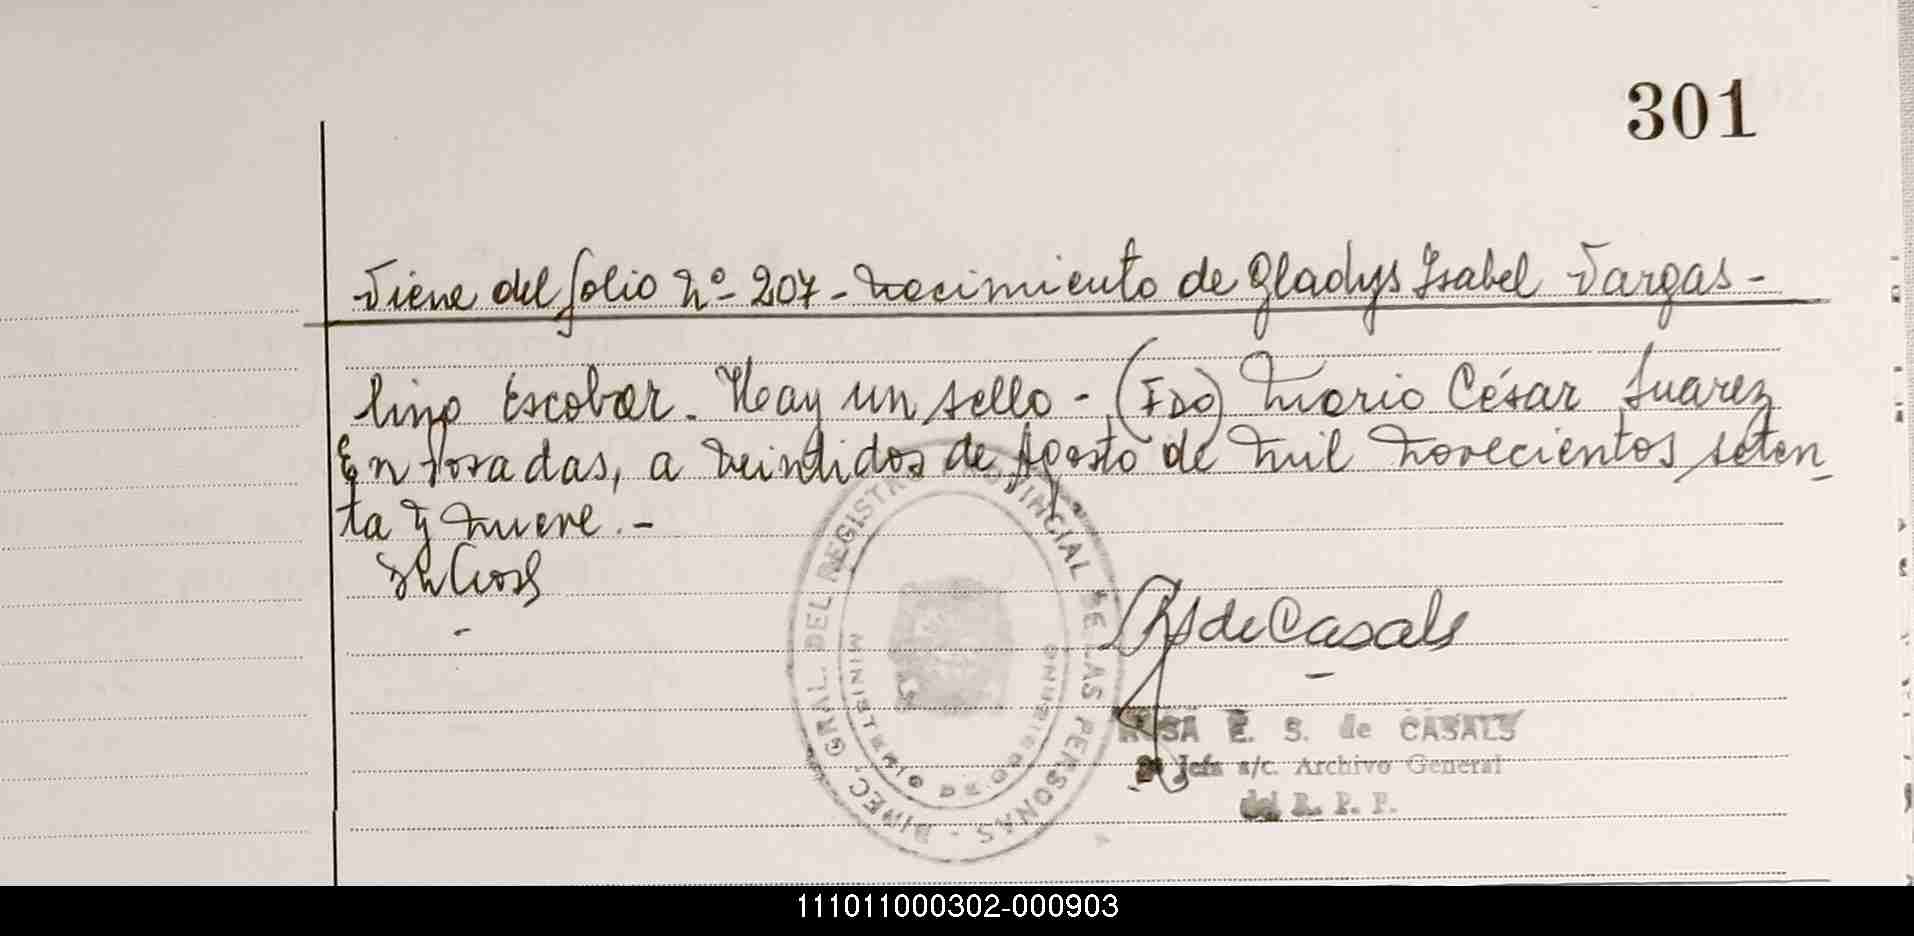 301
Viene del folio Nº 207 - Nacimiento de Gladys Isabel Vargas -
lino Escobar. Hay un sello - (FDO) Mario César Suarez
En Posadas, a veintidos de Agosto de mil novecientos seten
ta y nueve. -
RS de Casals
DIREC. GRAL. DEL REGISTRO PROVINCIAL DE LAS PERSONAS
MINISTERIO DE GOBIERNO
ROSA E. S. de CASALS
Jefa a/c. Archivo General
del R. P. P.
111011000302-000903